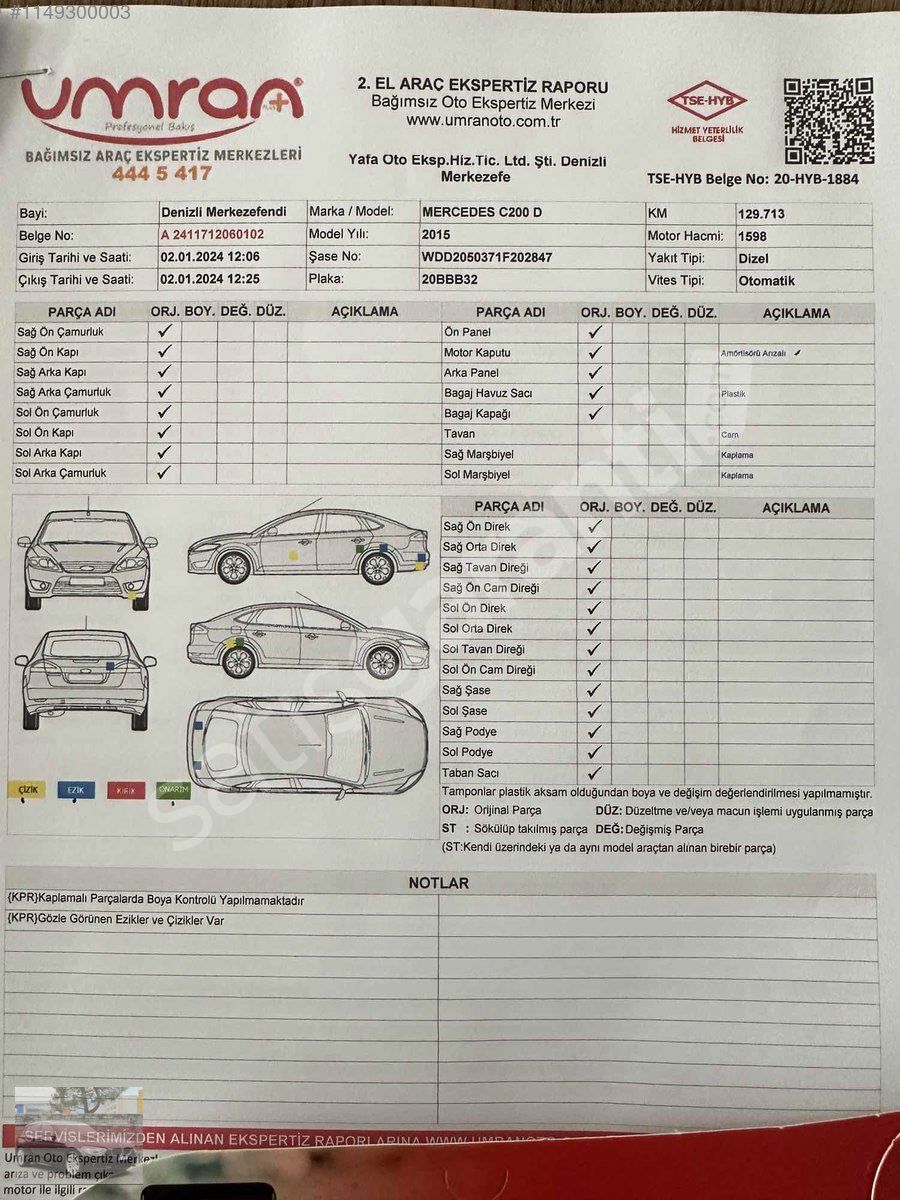 #1149300003
umran plus+
Profesyonel Bakış
BAĞIMSIZ ARAÇ EKSPERTİZ MERKEZLERİ
444 5 417
2. EL ARAÇ EKSPERTİZ RAPORU
Bağımsız Oto Ekspertiz Merkezi
www.umranoto.com.tr
Yafa Oto Eksp.Hiz.Tic. Ltd. Şti. Denizli
Merkezefe
TSE-HYB
HİZMET YETERLİLİK
BELGESİ
TSE-HYB Belge No: 20-HYB-1884
Bayi: Denizli Merkezefendi Marka / Model: MERCEDES C200 D KM 129.713
Belge No: A 2411712060102 Model Yılı: 2015 Motor Hacmi: 1598
Giriş Tarihi ve Saati: 02.01.2024 12:06 Şase No: WDD2050371F202847 Yakıt Tipi: Dizel
Çıkış Tarihi ve Saati: 02.01.2024 12:25 Plaka: 20BBB32 Vites Tipi: Otomatik
PARÇA ADI ORJ. BOY. DEĞ. DÜZ. AÇIKLAMA
Sağ Ön Çamurluk ✓
Sağ Ön Kapı ✓
Sağ Arka Kapı ✓
Sağ Arka Çamurluk ✓
Sol Ön Çamurluk ✓
Sol Ön Kapı ✓
Sol Arka Kapı ✓
Sol Arka Çamurluk ✓
PARÇA ADI ORJ. BOY. DEĞ. DÜZ. AÇIKLAMA
Ön Panel ✓
Motor Kaputu ✓ Amörtisörü Arızalı ✓
Arka Panel ✓
Bagaj Havuz Sacı ✓ Plastik
Bagaj Kapağı ✓
Tavan Cam
Sağ Marşbiyel Kaplama
Sol Marşbiyel Kaplama
ÇİZİK EZİK KIRIK ONARIM
PARÇA ADI ORJ. BOY. DEĞ. DÜZ. AÇIKLAMA
Sağ Ön Direk ✓
Sağ Orta Direk ✓
Sağ Tavan Direği ✓
Sağ Ön Cam Direği ✓
Sol Ön Direk ✓
Sol Orta Direk ✓
Sol Tavan Direği ✓
Sol Ön Cam Direği ✓
Sağ Şase ✓
Sol Şase ✓
Sağ Podye ✓
Sol Podye ✓
Taban Sacı ✓
Tamponlar plastik aksam olduğundan boya ve değişim değerlendirilmesi yapılmamıştır.
ORJ: Orijinal Parça DÜZ: Düzeltme ve/veya macun işlemi uygulanmış parça
ST : Sökülüp takılmış parça DEĞ: Değişmiş Parça
(ST:Kendi üzerindeki ya da aynı model araçtan alınan birebir parça)
NOTLAR
{KPR}Kaplamalı Parçalarda Boya Kontrolü Yapılmamaktadır
{KPR}Gözle Görünen Ezikler ve Çizikler Var
SERVİSLERİMİZDEN ALINAN EKSPERTİZ RAPORLARINA WWW.UMRANOTO
Umran Oto Ekspertiz
arıza ve problem
motor ile ilgili